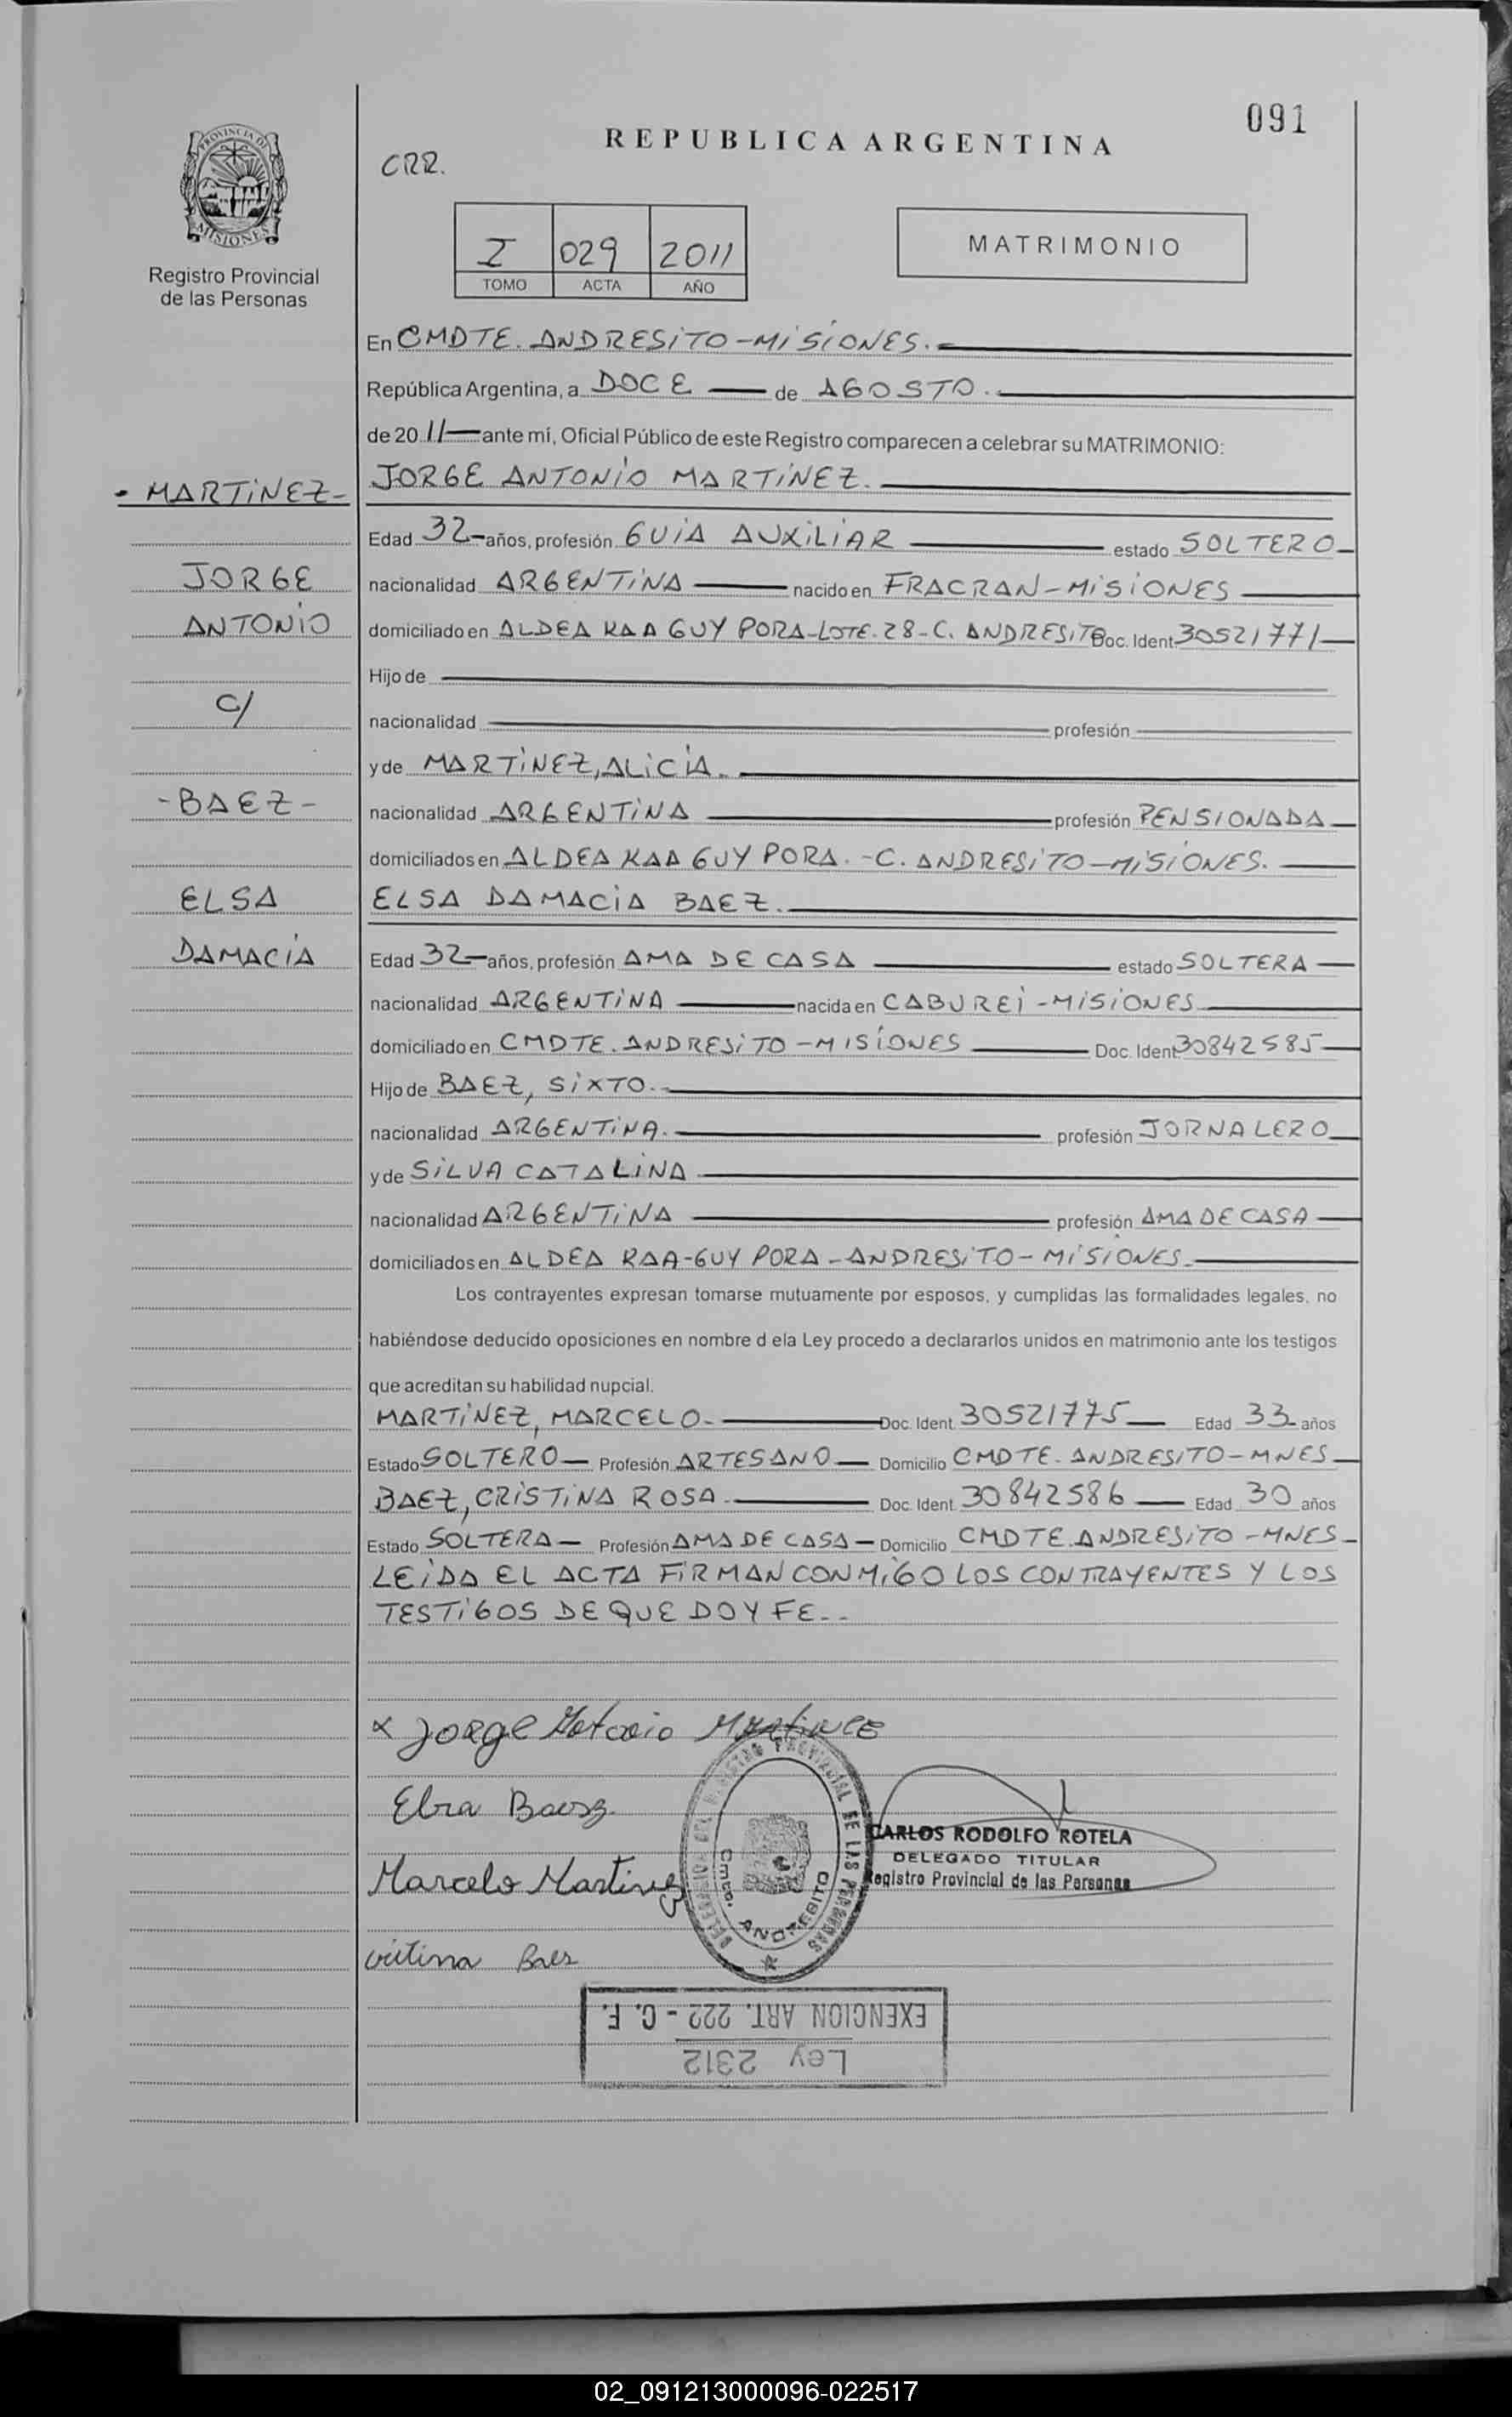 091
REPUBLICA ARGENTINA
CRR.
PROVINCIA DE
MISIONES
Registro Provincial
de las Personas
I 029 2011
TOMO ACTA AÑO
MATRIMONIO
En CMDTE. ANDRESITO - MISIONES.
República Argentina, a DOCE de AGOSTO.
de 20 11 ante mí, Oficial Público de este Registro comparecen a celebrar su MATRIMONIO:
- MARTINEZ -
JORGE ANTONIO MARTINEZ.
Edad 32 años, profesión GUIA AUXILIAR estado SOLTERO
JORGE
nacionalidad ARGENTINA nacido en FRACRAN - MISIONES
ANTONIO
domiciliado en ALDEA KAA GUY PORA - LOTE. 28 - C. ANDRESITO Doc. Ident. 30521771
Hijo de
C/
nacionalidad profesión
y de MARTINEZ, ALICIA.
- BAEZ -
nacionalidad ARGENTINA profesión PENSIONADA
domiciliados en ALDEA KAA GUY PORA. - C. ANDRESITO - MISIONES.
ELSA
ELSA DAMACIA BAEZ.
DAMACIA
Edad 32 años, profesión AMA DE CASA estado SOLTERA
nacionalidad ARGENTINA nacida en CABUREI - MISIONES
domiciliado en CMDTE. ANDRESITO - MISIONES Doc. Ident. 30842585
Hijo de BAEZ, SIXTO.
nacionalidad ARGENTINA. profesión JORNALERO
y de SILVA CATALINA
nacionalidad ARGENTINA profesión AMA DE CASA
domiciliados en ALDEA KAA-GUY PORA - ANDRESITO - MISIONES.
Los contrayentes expresan tomarse mutuamente por esposos, y cumplidas las formalidades legales, no
habiéndose deducido oposiciones en nombre d ela Ley procedo a declararlos unidos en matrimonio ante los testigos
que acreditan su habilidad nupcial.
MARTINEZ, MARCELO. Doc. Ident. 30521775 Edad 33 años
Estado SOLTERO Profesión ARTESANO Domicilio CMDTE. ANDRESITO - MNES
BAEZ, CRISTINA ROSA. Doc. Ident. 30842586 Edad 30 años
Estado SOLTERA Profesión AMA DE CASA Domicilio CMDTE. ANDRESITO - MNES
LEIDA EL ACTA FIRMAN CONMIGO LOS CONTRAYENTES Y LOS
TESTIGOS DE QUE DOY FE.
x Jorge
DELEGACION DEL REGISTRO PROVINCIAL DE LAS PERSONAS
Cmte. ANDRESITO
CARLOS RODOLFO ROTELA
DELEGADO TITULAR
Registro Provincial de las Personas
Marcelo Martinez
EXENCION ART. 222 - C. F.
Ley 2312
02_091213000096-022517